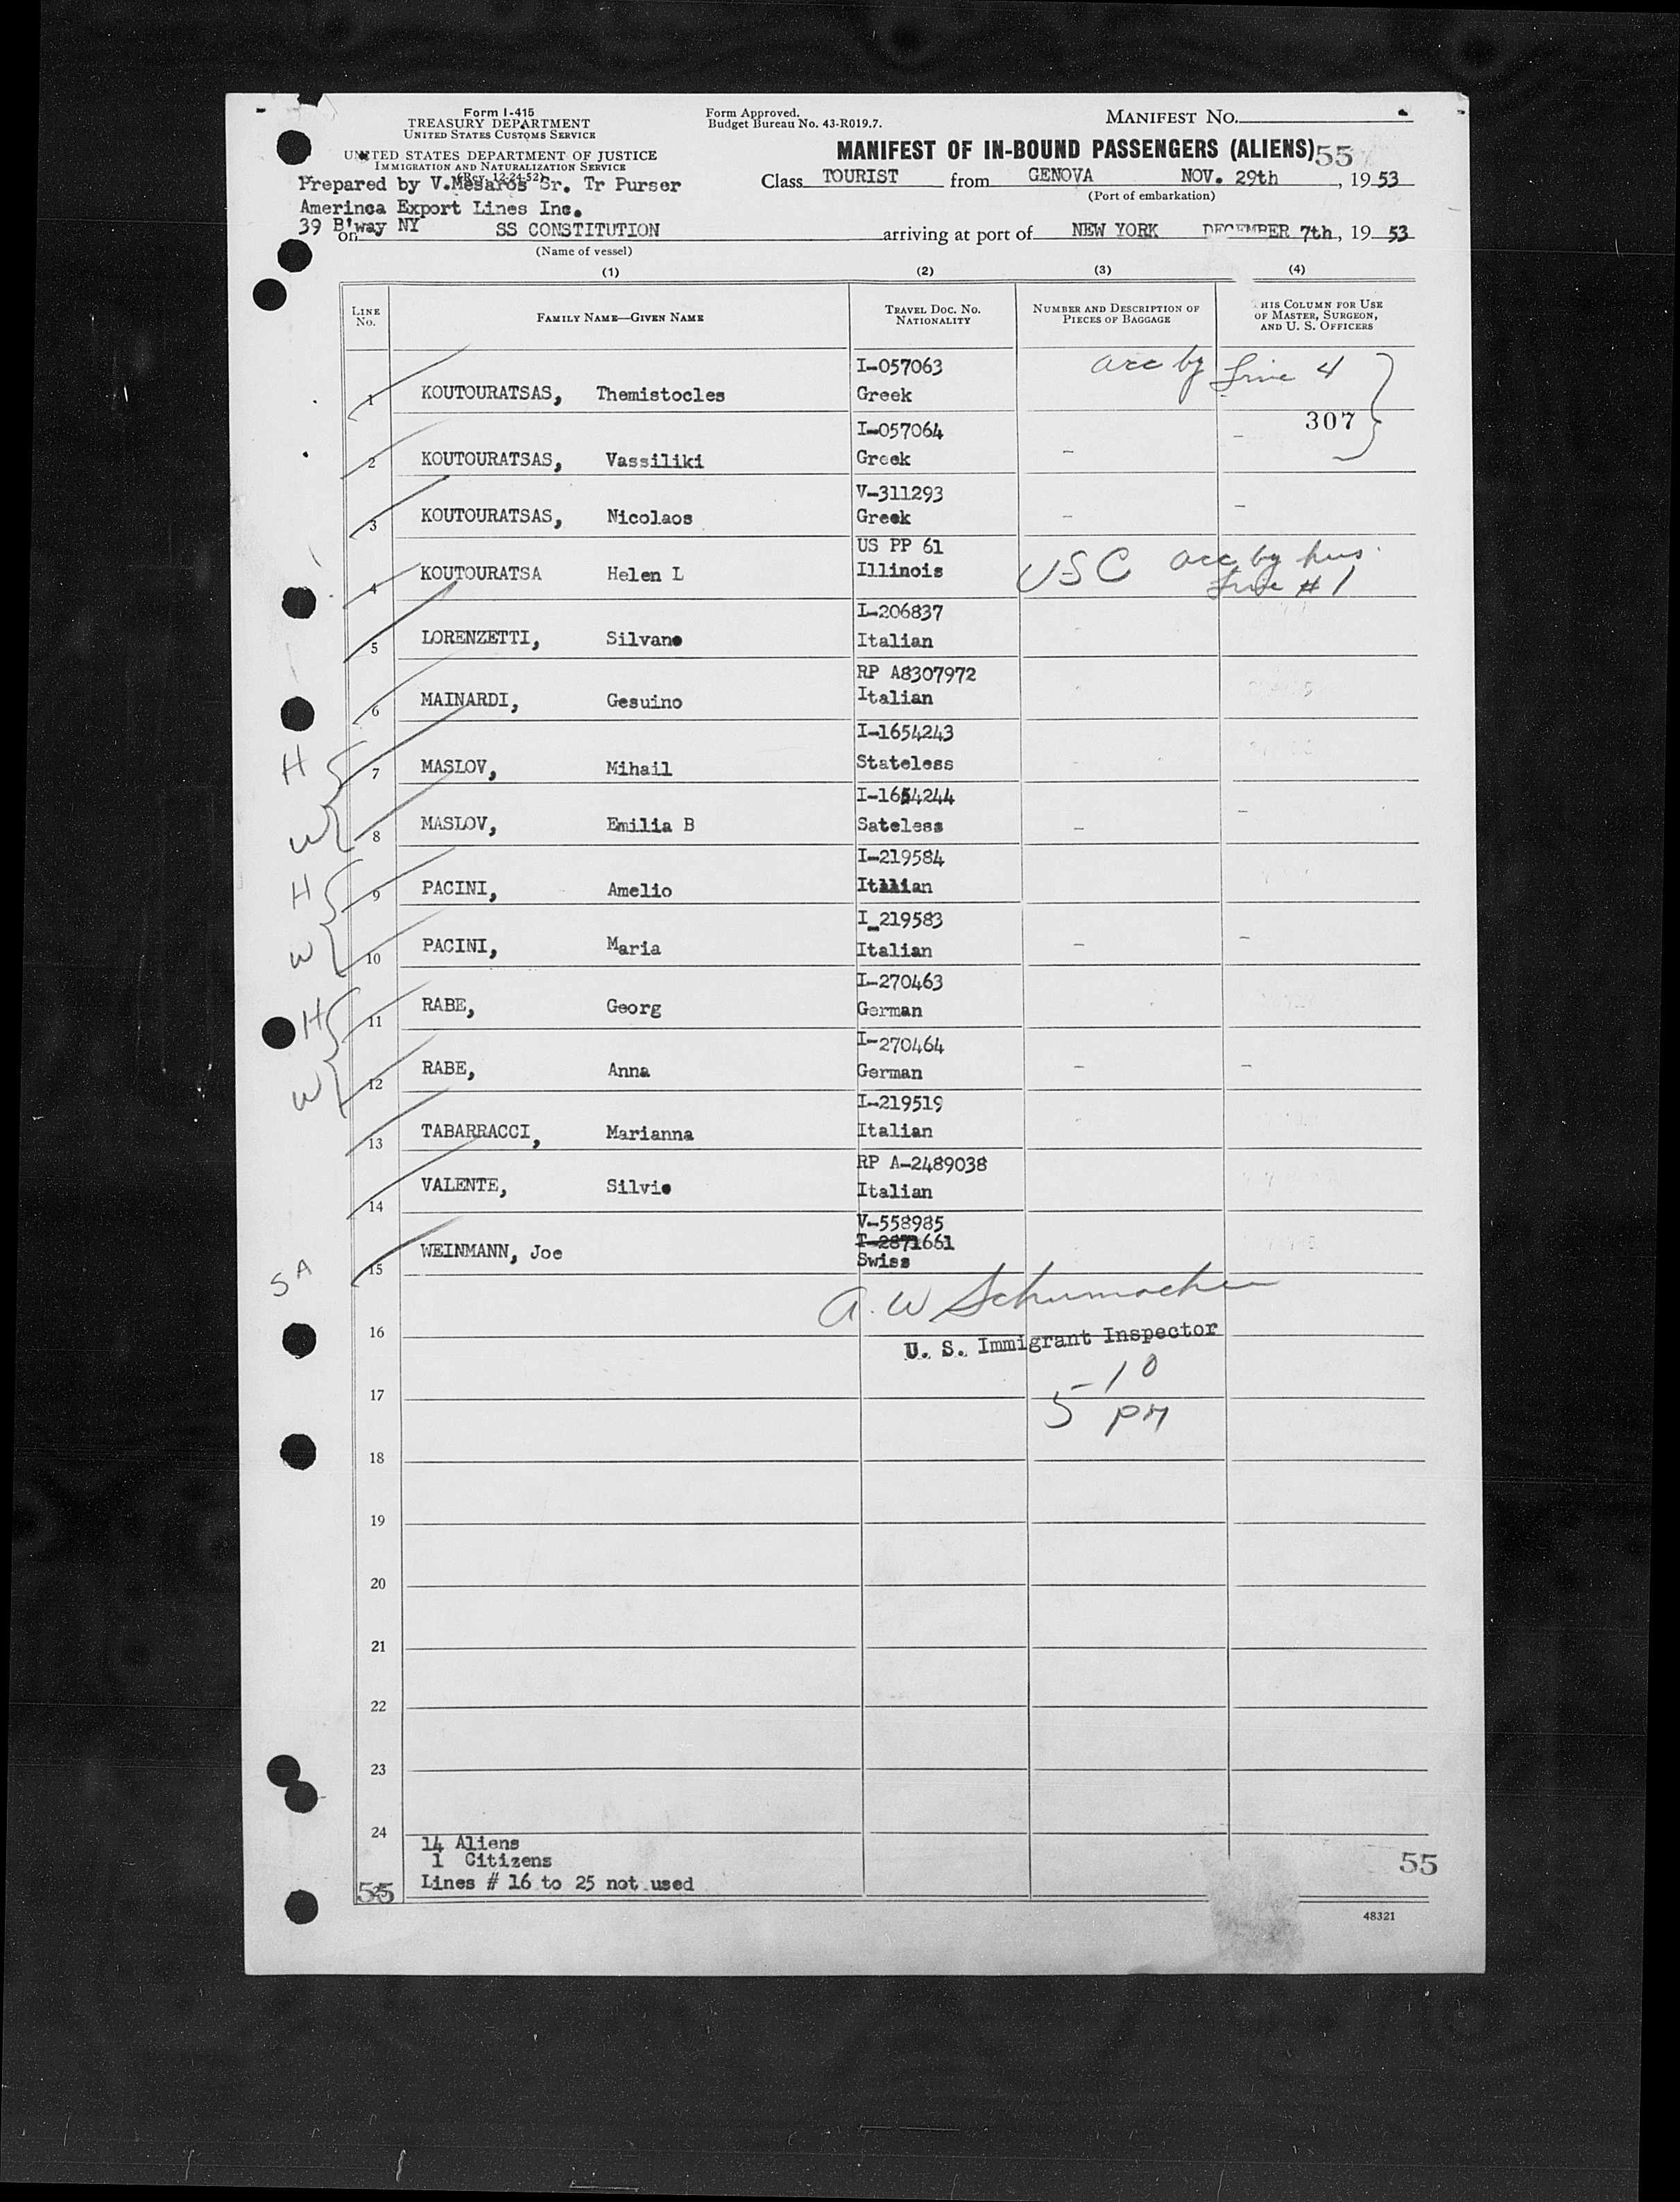 Form I-415
TREASURY DEPARTMENT
UNITED STATES CUSTOMS SERVICE
UNITED STATES DEPARTMENT OF JUSTICE
IMMIGRATION AND NATURALIZATION SERVICE
(Rev. 12-24-52)
Prepared by V.Mesaros Sr. Tr Purser
Amerinca Export Lines Inc.
39 B'way NY
Form Approved.
Budget Bureau No. 43-R019.7.
MANIFEST NO.
MANIFEST OF IN-BOUND PASSENGERS (ALIENS) 55
Class TOURIST from GENOVA NOV. 29th, 1953
(Port of embarkation)
on SS CONSTITUTION arriving at port of NEW YORK DECEMBER 7th, 19 53
(Name of vessel)
(1) (2) (3) (4)
LINE NO. FAMILY NAME—GIVEN NAME TRAVEL DOC. NO. NATIONALITY NUMBER AND DESCRIPTION OF PIECES OF BAGGAGE HIS COLUMN FOR USE OF MASTER, SURGEON, AND U. S. OFFICERS
I-057063 acc by Line 4
1 KOUTOURATSAS, Themistocles Greek
307
I-057064
2 KOUTOURATSAS, Vassiliki Greek - -
V-311293
3 KOUTOURATSAS, Nicolaos Greek - -
US PP 61
4 KOUTOURATSA Helen L Illinois USC acc by hus. Line # 1
I-206837
5 LORENZETTI, Silvano Italian
RP A8307972
6 MAINARDI, Gesuino Italian
I-1654243
H 7 MASLOV, Mihail Stateless
I-1654244
W 8 MASLOV, Emilia B Sateless - -
I-219584
H 9 PACINI, Amelio Italian
I_219583
W 10 PACINI, Maria Italian - -
I-270463
H 11 RABE, Georg German
I-270464
W 12 RABE, Anna German - -
I-219519
13 TABARRACCI, Marianna Italian
RP A-2489038
14 VALENTE, Silvio Italian
V-558985
T-2871661
SA 15 WEINMANN, Joe Swiss
A. W Schumacher
16
U. S. Immigrant Inspector
5-10
17
PM
18
19
20
21
22
23
24
14 Aliens
1 Citizens
55
Lines # 16 to 25 not used
55
48321